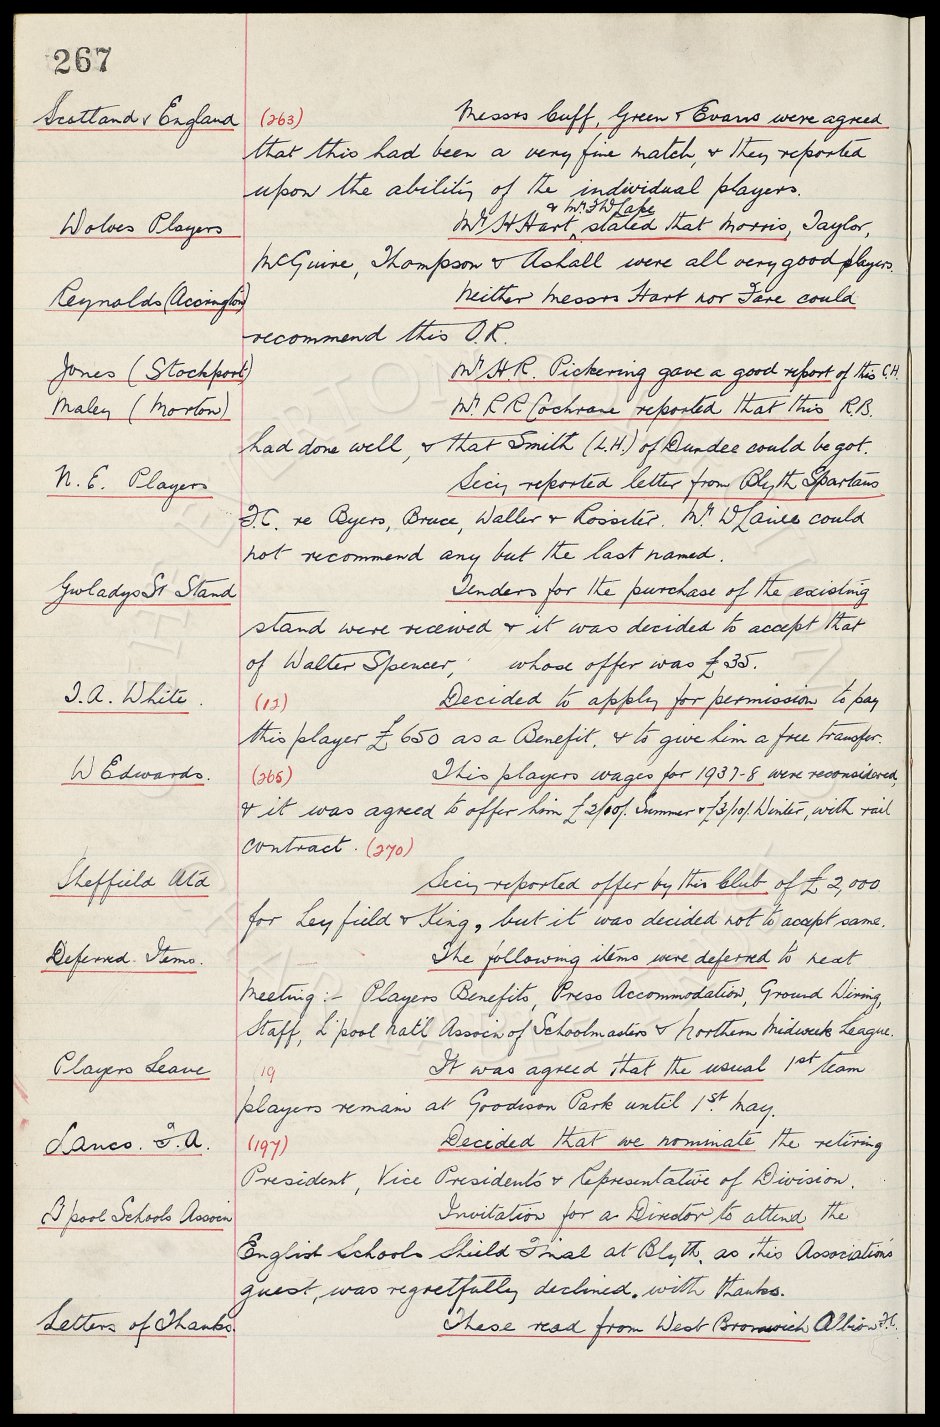 267
Scotland v England (263) Messrs Cuff, Green & Evans were agreed
that this had been a very fine match, & they reported
upon the ability of the individual players.
& Mr F W Lake
Wolves Players Mr H Hart stated that Morris, Taylor,
McGuire, Thompson & Ashall were all very good players.
Reynolds (Accrington) Neither Messrs Hart nor Fare could
recommend this O.R.
Jones (Stockport) Mr H.R. Pickering gave a good report of this C.H.
Maley (Morton) Mr R R Cochrane reported that this R.B.
had done well, & that Smith (L.H.) of Dundee could be got.
N. E. Players Secy reported letter from Blyth Spartans
F.C. re Byers, Bruce, Waller & Rossiter. Mr W could
not recommend any but the last named.
Gwladys St Stand Tenders for the purchase of the existing
stand were received & it was decided to accept that
of Walter Spencer, whose offer was £35.
T.A. White. (12) Decided to apply for permission to pay
this player £650 as a Benefit, & to give him a free transfer.
W Edwards. (265) This players wages for 1937-8 were reconsidered,
& it was agreed to offer him £2/10/. Summer & £3/10/. Winter, with rail
contract. (270)
Sheffield Utd Secy reported offer by this Club of £2,000
for Leyfield & King, but it was decided not to accept same.
Deferred Items. The following items were deferred to next
Meeting:- Players Benefits, Press Accommodation, Ground Wiring,
Staff, L'pool Nat'l Associn of Schoolmasters & Northern Midweek League.
Players Leave 19 It was agreed that the usual 1st team
players remain at Goodison Park until 1st. May.
Lancs. F.A. (197) Decided that we nominate the retiring
President, Vice Presidents & Representative of Division.
B'pool Schools Associn Invitation for a Director to attend the
English Schools Shield Final at Blyth, as this Association's
guest, was regretfully declined, with thanks.
Letters of Thanks. These read from West Bromwich Albion F.C.